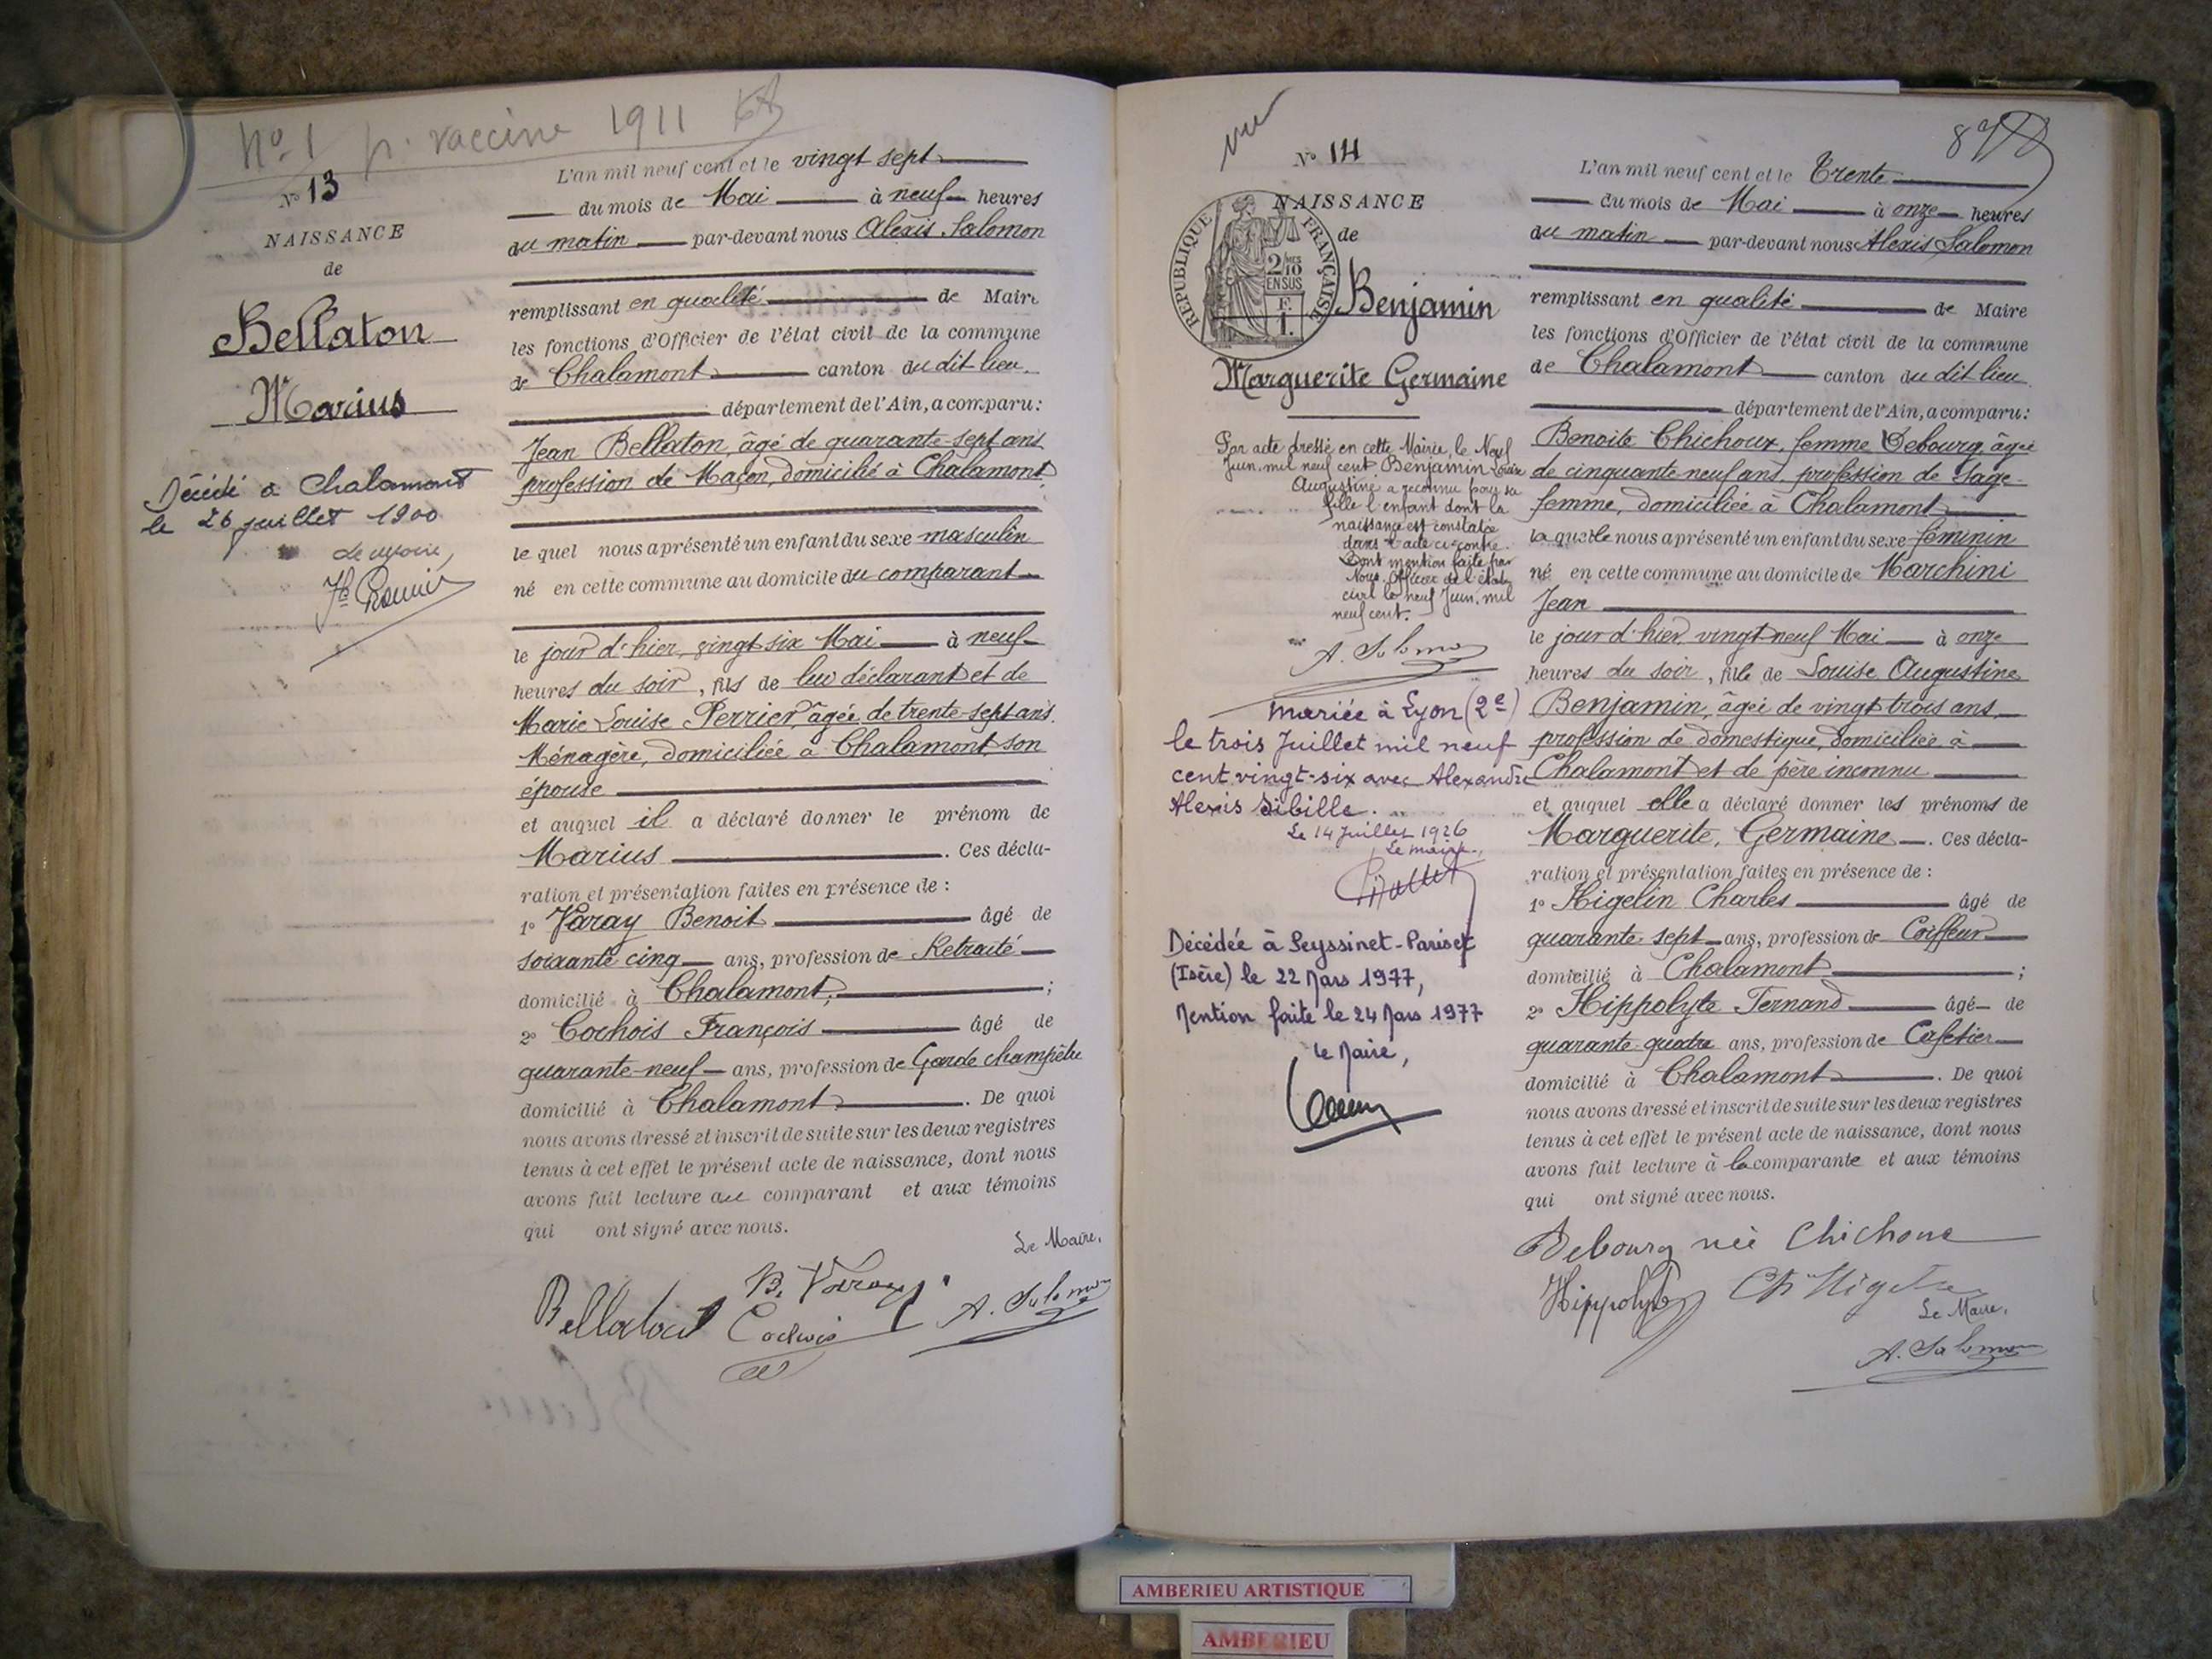 No 1 p. vaccine 1911
No 13
NAISSANCE
de
Bellaton
Marius
Décédé à Chalamont
le 26 juillet 1900
Le Maire,
L'an mil neuf cent et le vingt sept
du mois de Mai à neuf heures
du matin par-devant nous Alexis Salomon
remplissant en qualité de Maire
les fonctions d'Officier de l'état civil de la commune
de Chalamont canton du dit lieu
département de l'Ain, a comparu :
Jean Bellaton, âgé de quarante-sept ans
profession de Maçon, domicilié à Chalamont,
le quel nous a présenté un enfant du sexe masculin
né en cette commune au domicile du comparant
le jour d'hier, vingt six Mai à neuf
heures du soir, fils de lui déclarant et de
Marie Louise Perrier, âgée de trente-sept ans
Ménagère, domiciliée à Chalamont, son
épouse
et auquel il a déclaré donner le prénom de
Marius. Ces décla-
ration et présentation faites en présence de :
1º Varay Benoit âgé de
soixante cinq ans, profession de Retraité
domicilié à Chalamont, ;
2º Cochois François âgé de
quarante-neuf ans, profession de Garde champêtre
domicilié à Chalamont. De quoi
nous avons dressé et inscrit de suite sur les deux registres
tenus à cet effet le présent acte de naissance, dont nous
avons fait lecture au comparant et aux témoins
qui ont signé avec nous.
Le Maire,
Bellaton B. Varay A. Salomon
Cochois
vu
No 14
87
NAISSANCE
de
REPUBLIQUE FRANÇAISE
2/10 MES
EN SUS
F.
1.
Benjamin
Marguerite Germaine
Par acte dressé en cette Mairie, le Neuf
Juin, mil neuf cent, Benjamin Louise
Augustine a reconnu pour sa
fille l'enfant dont la
naissance est constatée
dans l'acte ci-contre.
Dont mention faite par
Nous, Officier de l'état
civil le neuf Juin, mil
neuf cent.
A. Salomon
mariée à Lyon (2e)
le trois Juillet mil neuf
cent vingt-six avec Alexandre
Alexis Sibille.
Le 14 Juillet 1926
Le maire,
Décédée à Seyssinet-Pariset
(Isère) le 22 Mars 1977,
Mention faite le 24 Mars 1977
Le Maire,
L'an mil neuf cent et le Trente
du mois de Mai à onze heures
du matin par-devant nous Alexis Salomon
remplissant en qualité de Maire
les fonctions d'Officier de l'état civil de la commune
de Chalamont canton du dit lieu
département de l'Ain, a comparu :
Benoite Chichoux, femme Debourg, âgée
de cinquante neuf ans, profession de Sage-
femme, domiciliée à Chalamont
la quelle nous a présenté un enfant du sexe féminin
né en cette commune au domicile de Marchini
Jean
le jour d'hier, vingt neuf Mai à onze
heures du soir, fille de Louise Augustine
Benjamin, âgée de vingt trois ans,
profession de domestique, domiciliée à
Chalamont et de père inconnu
et auquel elle a déclaré donner les prénoms de
Marguerite, Germaine. Ces décla-
ration et présentation faites en présence de :
1º Higelin Charles âgé de
quarante sept ans, profession de Coiffeur
domicilié à Chalamont ;
2º Hippolyte Fernand âgé de
quarante-quatre ans, profession de Cafetier
domicilié à Chalamont. De quoi
nous avons dressé et inscrit de suite sur les deux registres
tenus à cet effet le présent acte de naissance, dont nous
avons fait lecture à la comparante et aux témoins
qui ont signé avec nous.
Debourg née Chichoux
Hippolyte Ch Higelin
Le Maire,
A. Salomon
AMBERIEU ARTISTIQUE
AMBERIEU